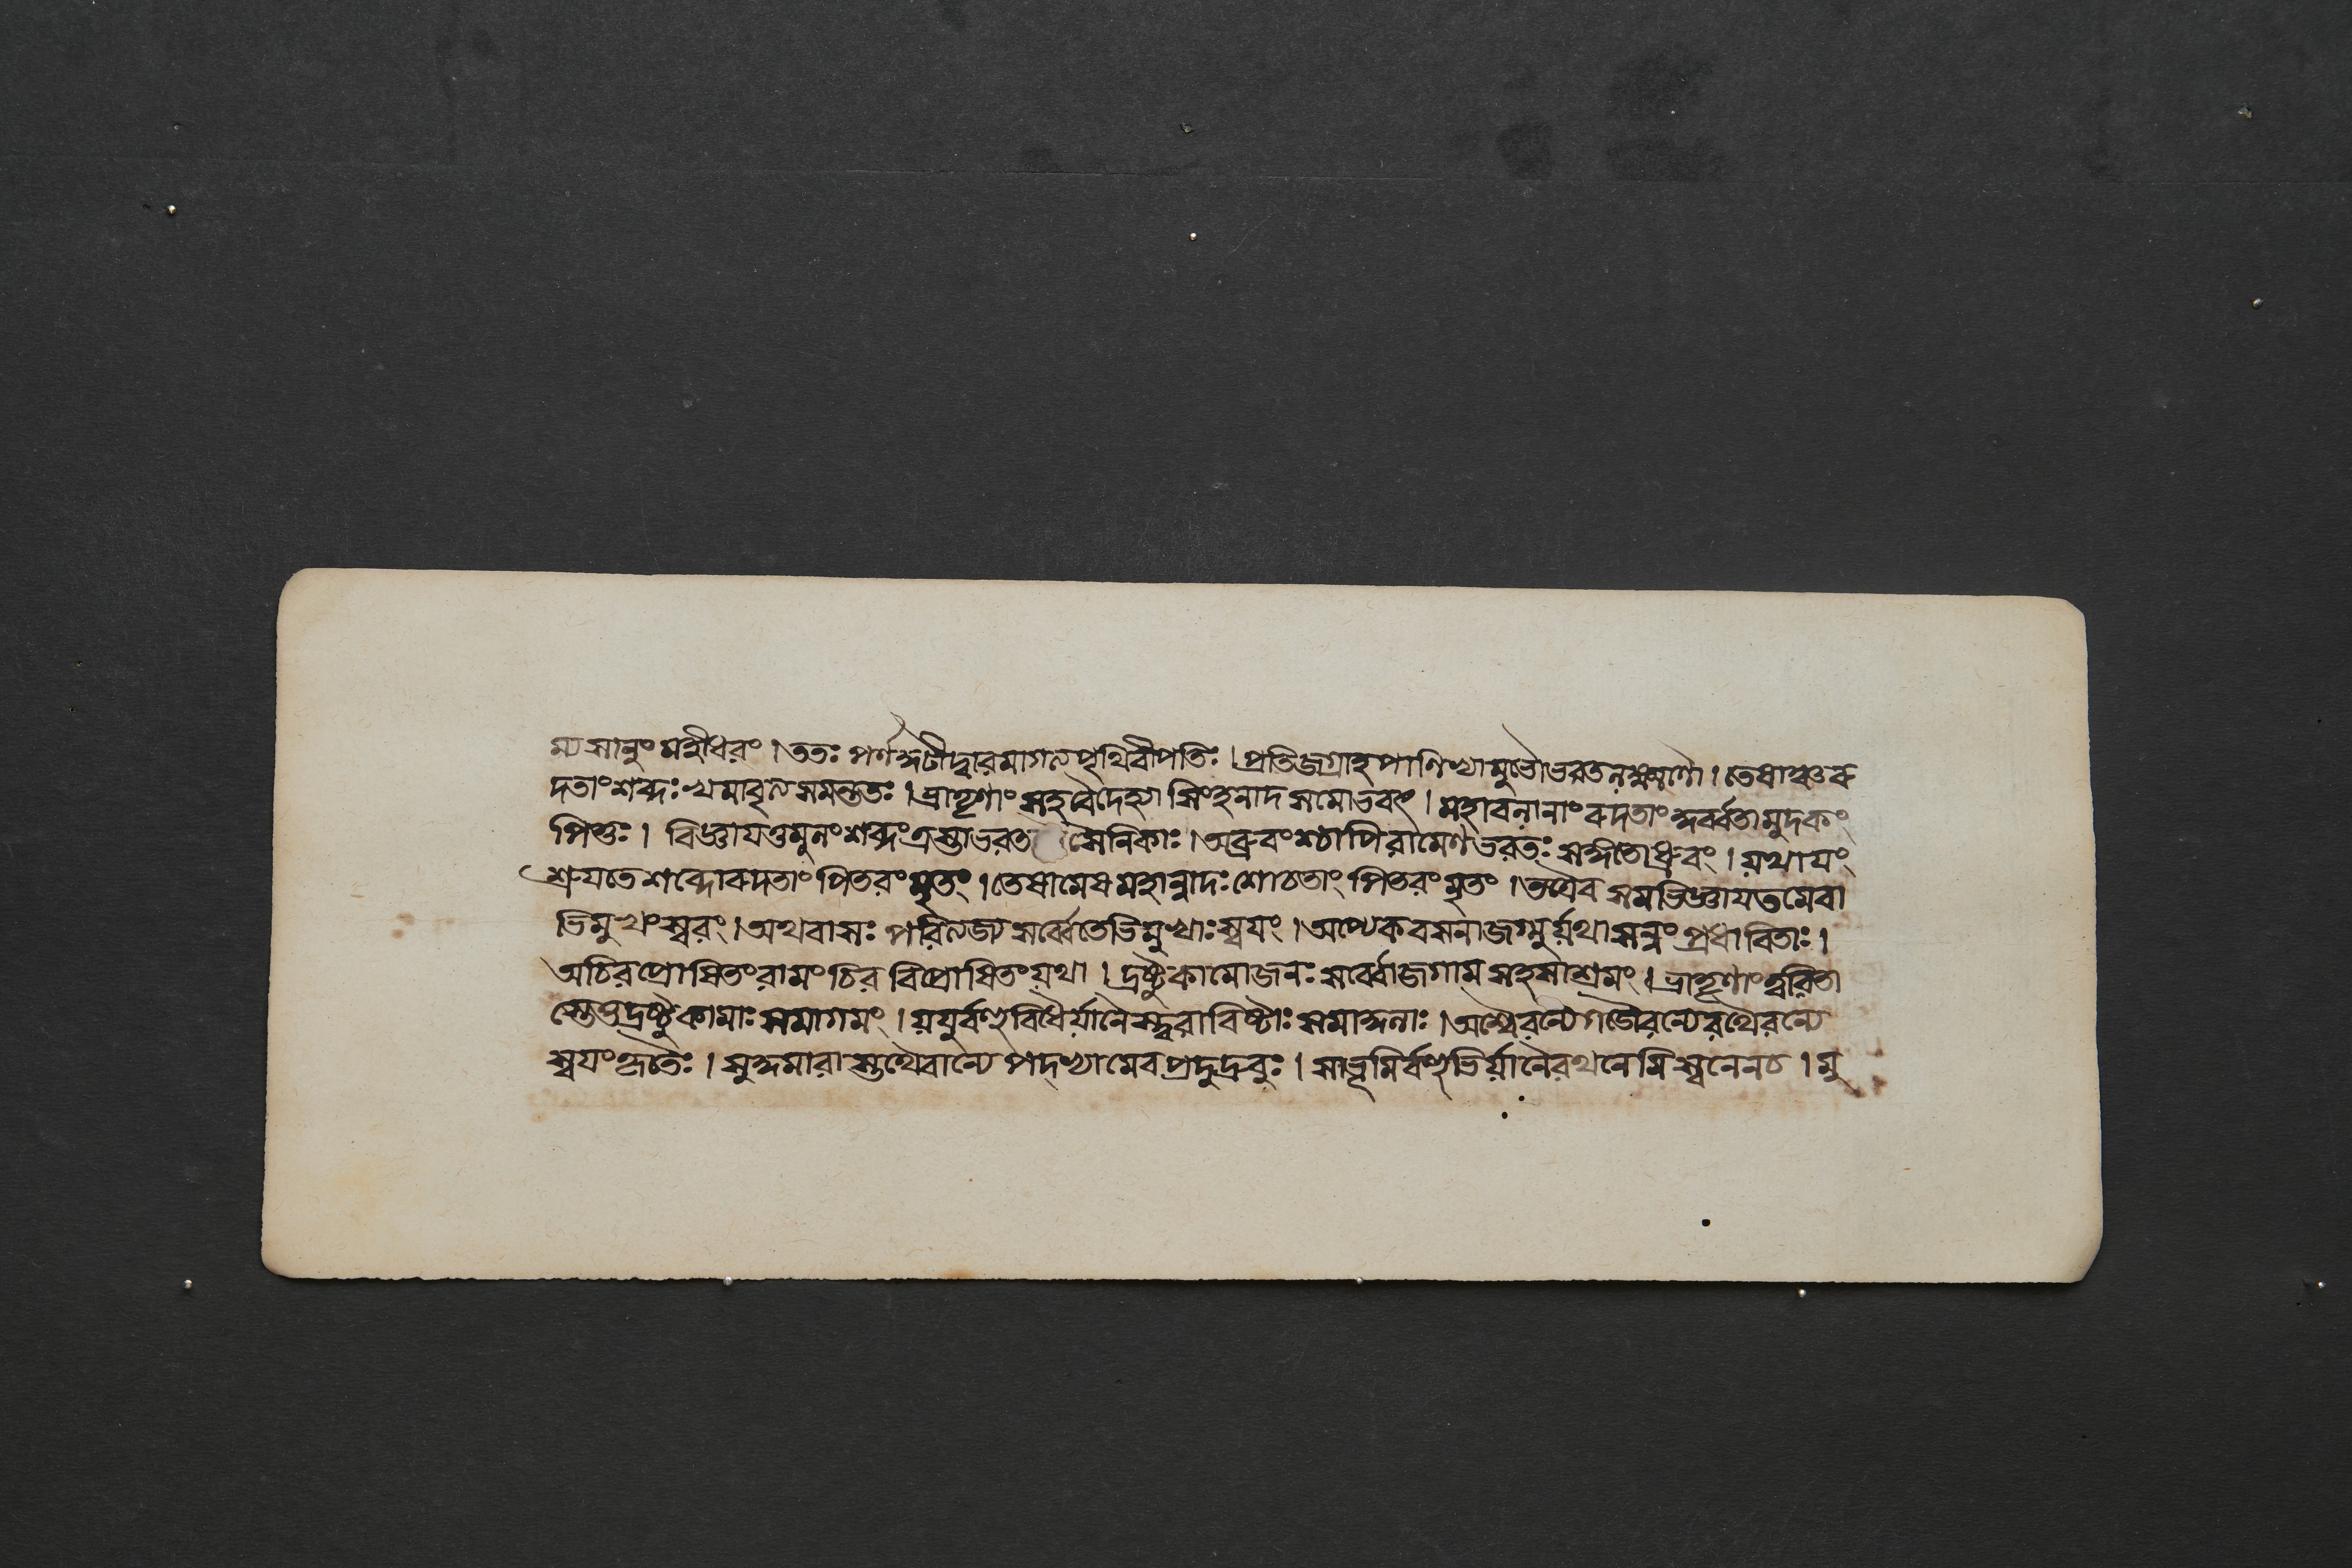 ম্য সানুং মহীধরং । ততঃ পর্ণকুটীদ্বারমাগত্য পৃথিবীপতিঃ । প্রতিজগ্রাহ পাণিভ্যামুভৌ ভরতলক্ষ্মণৌ । তেষাঞ্চ রু
দতাং শব্দঃ খমাবৃত্য সমন্ততঃ । ভ্রাতৄণাং সহ বৈদেহ্যা সিংহনাদ সমোভবৎ । মহাবলানাং রুদতাং কুর্ব্বতামুদকং
পিতুঃ । বিজ্ঞায তুমুলং শব্দং ত্রস্তা ভরত সৈনিকাঃ । অব্রুবংশ্চাপি রামেণ ভরতঃ সঙ্গতো ধ্রুবং । যথাযং
শ্রূযতে শব্দো রুদতাং পিতরং মৃতং । তেষামেষ মহান্নাদঃ শোচতাং পিতরং মৃতং । তত্রৈব সমভিজ্ঞায তমেবা
ভিমুখং স্বরং । অথ বাসঃ পরিত্যজ্য সর্ব্বেতেভিমুখাঃ স্বযং । অপ্যেকবসনা জগ্মুর্য্যথাসন্নং প্রধাবিতাঃ ।
অচিরপ্রোষিতং রামং চির বিপ্রোষিতং যথা । দ্রষ্টুকামো জনঃ সর্ব্বো জগাম সহসাশ্রমং । ভ্রাতৄণাং ত্বরিতা
স্তেতু দ্রষ্টুকামাঃ সমাগমং । যযুর্বহুবিধৈর্য্যানৈস্ত্বরাবিষ্টাঃ সমাকুলাঃ । অশ্বৈরন্যে গজৈরন্যে রথৈরন্যে
স্বযংকৃতৈঃ । সুকুমারাস্তথৈবান্যে পদ্ভ্যামেব প্রদুদ্রুবুঃ । সা ভূমির্বহুভির্য্যানৈ রথনেমি স্বনেন চ । মু